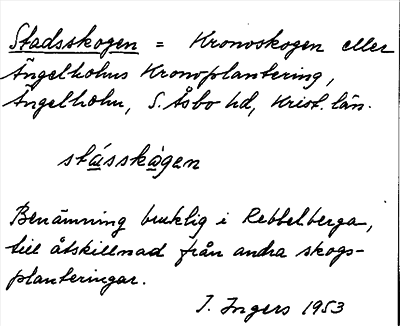 Stadsskogen = Kronoskogen eller
Ängelholms Kronoplantering,
Ängelholm, S. Åsbo hd, Krist. län.
stásskàgen
Benämning bruklig i Rebbelberga,
till åtskillnad från andra skogs-
planteringar.
I. Ingers 1953